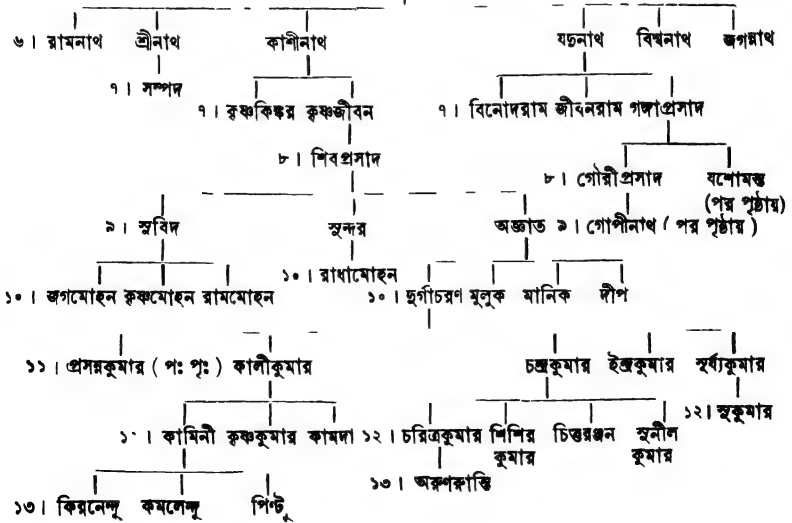 ৬। রামনাথ শ্রীনাথ কাশীনাথ যদুনাথ বিশ্বনাথ জগন্নাথ
৭। সম্পদ
৭। কৃষ্ণকিঙ্কর কৃষ্ণজীবন ৭। বিনোদরাম জীবনরাম গঙ্গাপ্রসাদ
৮। শিবপ্রসাদ
৮। গৌরীপ্রসাদ যশোমন্ত
(পর পৃষ্ঠায়)
৯। সুবিদ সুন্দর অজ্ঞাত ৯। গোপীনাথ ( পর পৃষ্ঠায় )
১০। রাধামোহন
১০। জগমোহন কৃষ্ণমোহন রামমোহন ১০। দুর্গাচরণ মুলুক মানিক দীপ
১১। প্রসন্নকুমার ( পঃ পৃঃ ) কালীকুমার চন্দ্রকুমার ইন্দ্রকুমার সূর্য্যকুমার
১২। সুকুমার
১২। কামিনী কৃষ্ণকুমার কামদা ১২। চরিত্রকুমার শিশির চিত্তরঞ্জন সুনীল
কুমার কুমার
১৩। অরুণকান্তি
১৩। কিরনেন্দু কমলেন্দু পিন্টু